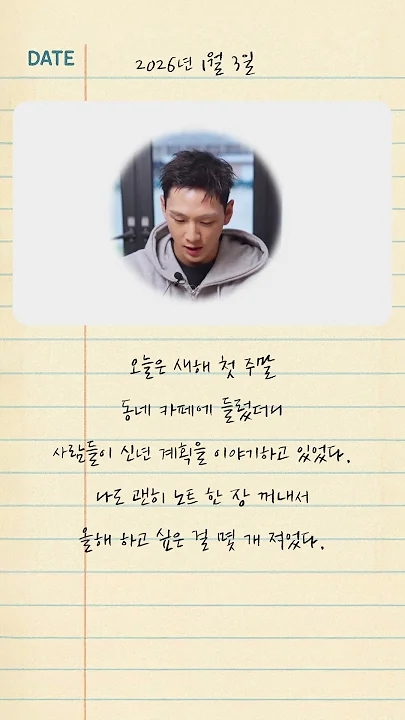 DATE 2026년 1월 3일
오늘은 새해 첫 주말
동네 카페에 들렀더니
사람들이 신년 계획을 이야기하고 있었다.
나도 괜히 노트 한 장 꺼내서
올해 하고 싶은 걸 몇 개 적었다.